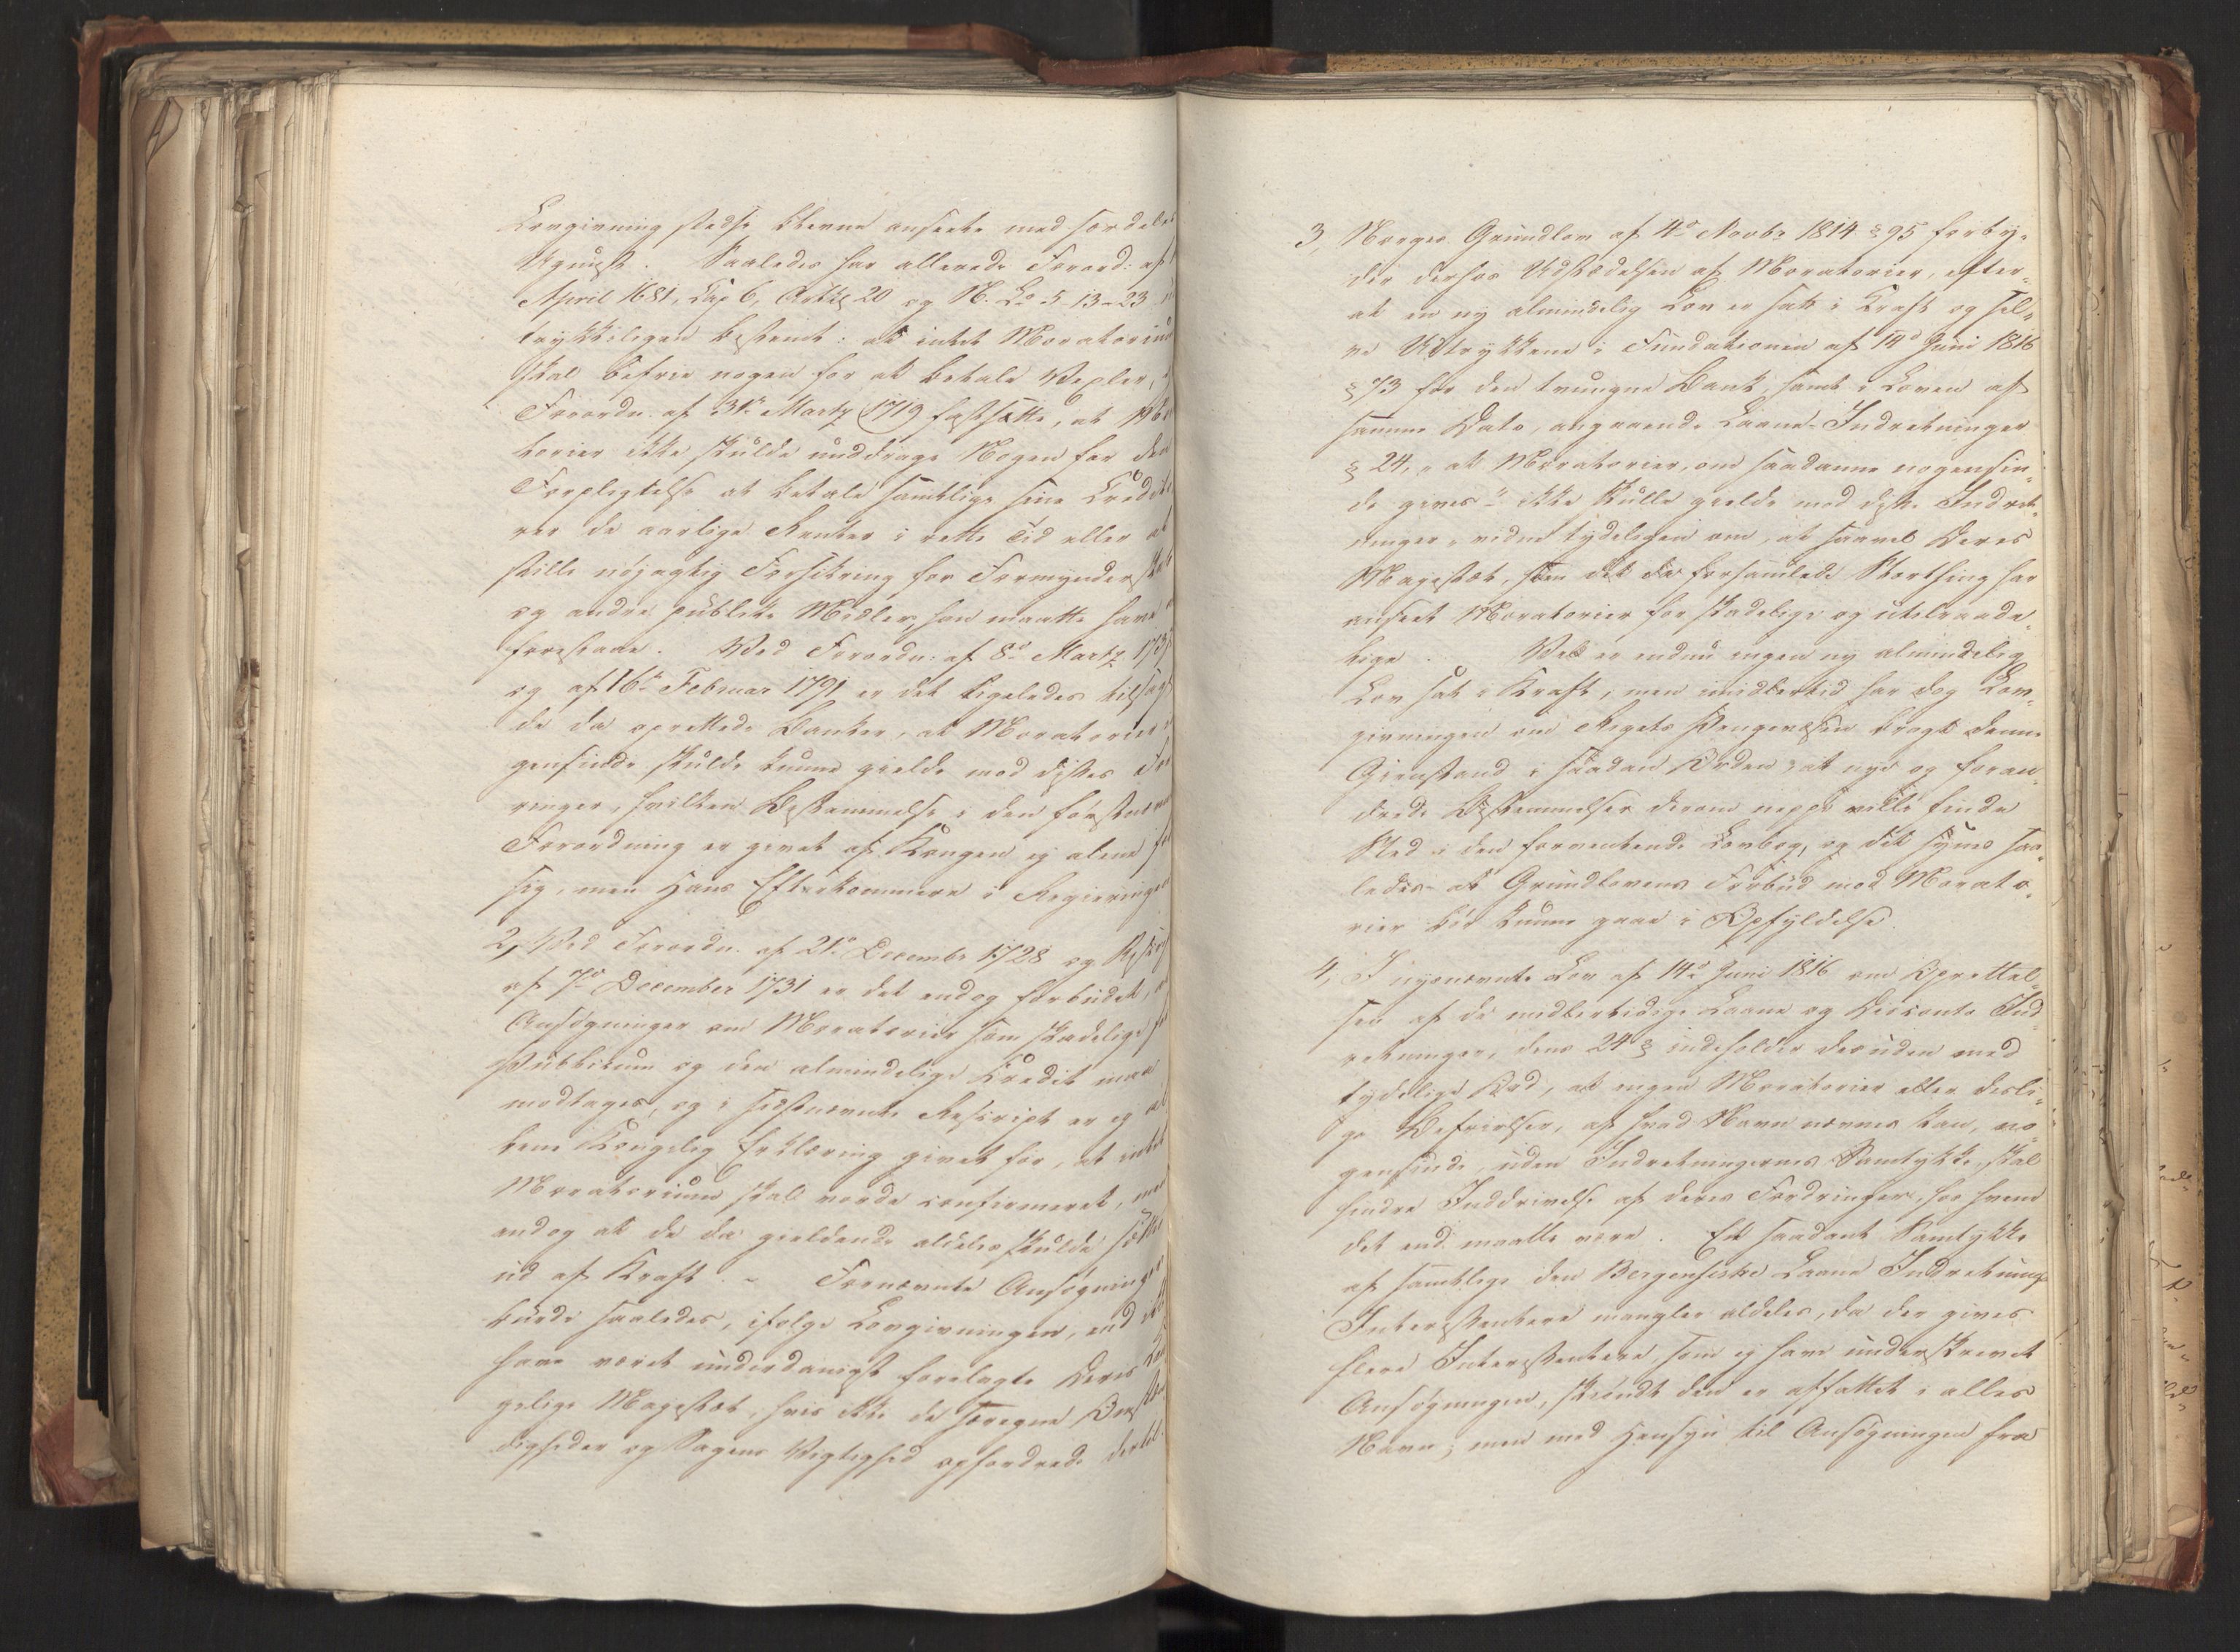 Lovgivning stedse blevne anseete med særdeles
Ugunst. Saaledes har allerede Forord: af
April 1681, Cap 6, Art: 20 og N. Lo 5-13-23
trykkeligen bestemt: at intet Moratorium
skal befrie nogen for at betale Vexler,
Forordn. af 31te Martz 1719 fastsatte, at Mora
torier ikke skulde unddrage Nogen for den
Forpligtelse at betale samtlige sine Credito
rer de aarlige Renter i rette Tid eller at
stille nöjagtig Forsikring for Formynderskabs
og andre publike Midler, han maatte have
forestaae. Ved Forordn: af 8de Martz 173
og af 16de Februar 1791 er det ligeledes tilsagt
de da oprettede Banker, at Moratorier
gensinde skulde kunne gielde mod disses For
ringer, hvilken Bestemmelse i den förstnævnte
Forordning er givet af Kongen ej alene for
sig, men Hans Efterkommere i Regieringen
2, Ved Forordn. af 21de Decembr 1728 og Rescript
af 7de December 1731 er det endog forbudet, at
Ansögninger om Moratorier som skadelige for
Publikum og den almindelige Credit maa
modtages, og i sidstnævnte Rescript er ej al
lene Kongelig Erklæring givet for, at intet
Moratorium skal vorde confirmeret, men
endog at de da gieldende aldeles skulde sættes
ud af Kraft. - Fornævnte Ansögninger
burde saaledes, ifölge Lovgivningen, end ikke
have været underdanigst forelagte Deres Kon
gelige Majestæt, hvis ikke de særegne Omstæn
digheder og Sagens Vigtighed opfordrede dertil.
3, Norges Grundlov af 4de Novbr 1814 § 95 forby-
der derhos Udstædelsen af Moratorier, efter-
at en ny almindelig Lov er satt i Kraft og sel-
ve Udtrykkene i Fundationen af 14de Juni 1816
§ 73 for den tvungne Bank, samt i Loven af
samme Dato, angaaende Laane-Indretninger
§ 24, "at Moratorier, om saadanne nogensin-
de gives" ikke skulle gielde mod disse Indret-
ninger, vidne tydeligen om, at saavel Deres
Majestæt, som det da forsamlede Storthing har
anseet Moratorier for skadelige og utilraade-
lige. Vel er endnu ingen ny almindelig
Lov sat i Kraft, men imidlertid har dog Lov-
givningen om Rigets Pengevæsen bragt denne
Gienstand i saadan Orden, at nye og foran-
drede Bestemmelser derom neppe ville finde
Sted i den forventende Lovbog, og det synes saa-
ledes at Grundlovens Forbud mod Morato-
rier bör kunne gaae i Opfyldelse.
4, I nysnævnte Lov af 14de Juni 1816 om Oprettel-
sen af de midlertidige Laane og Disconto Ind-
retninger, dens 24 § indeholder desuden med
tydelige Ord, at ingen Moratorier eller desli-
ge Befrielser, af hvad Navn nævnes kan, no-
gensinde, uden Indretningernes Samtykke, skal
hindre Inddrivelse af deres Fordringer, hos hvem
det end maatte være. Et saadant Samtykke
af samtlige den Bergensiske Laane Indretnings
Interessentere mangler aldeles, da der gives
flere Interessentere, som ej have underskrevet
Ansögningen, skiöndt den er affattet i alles
Navn; men med Hensyn til Ansögningen fra